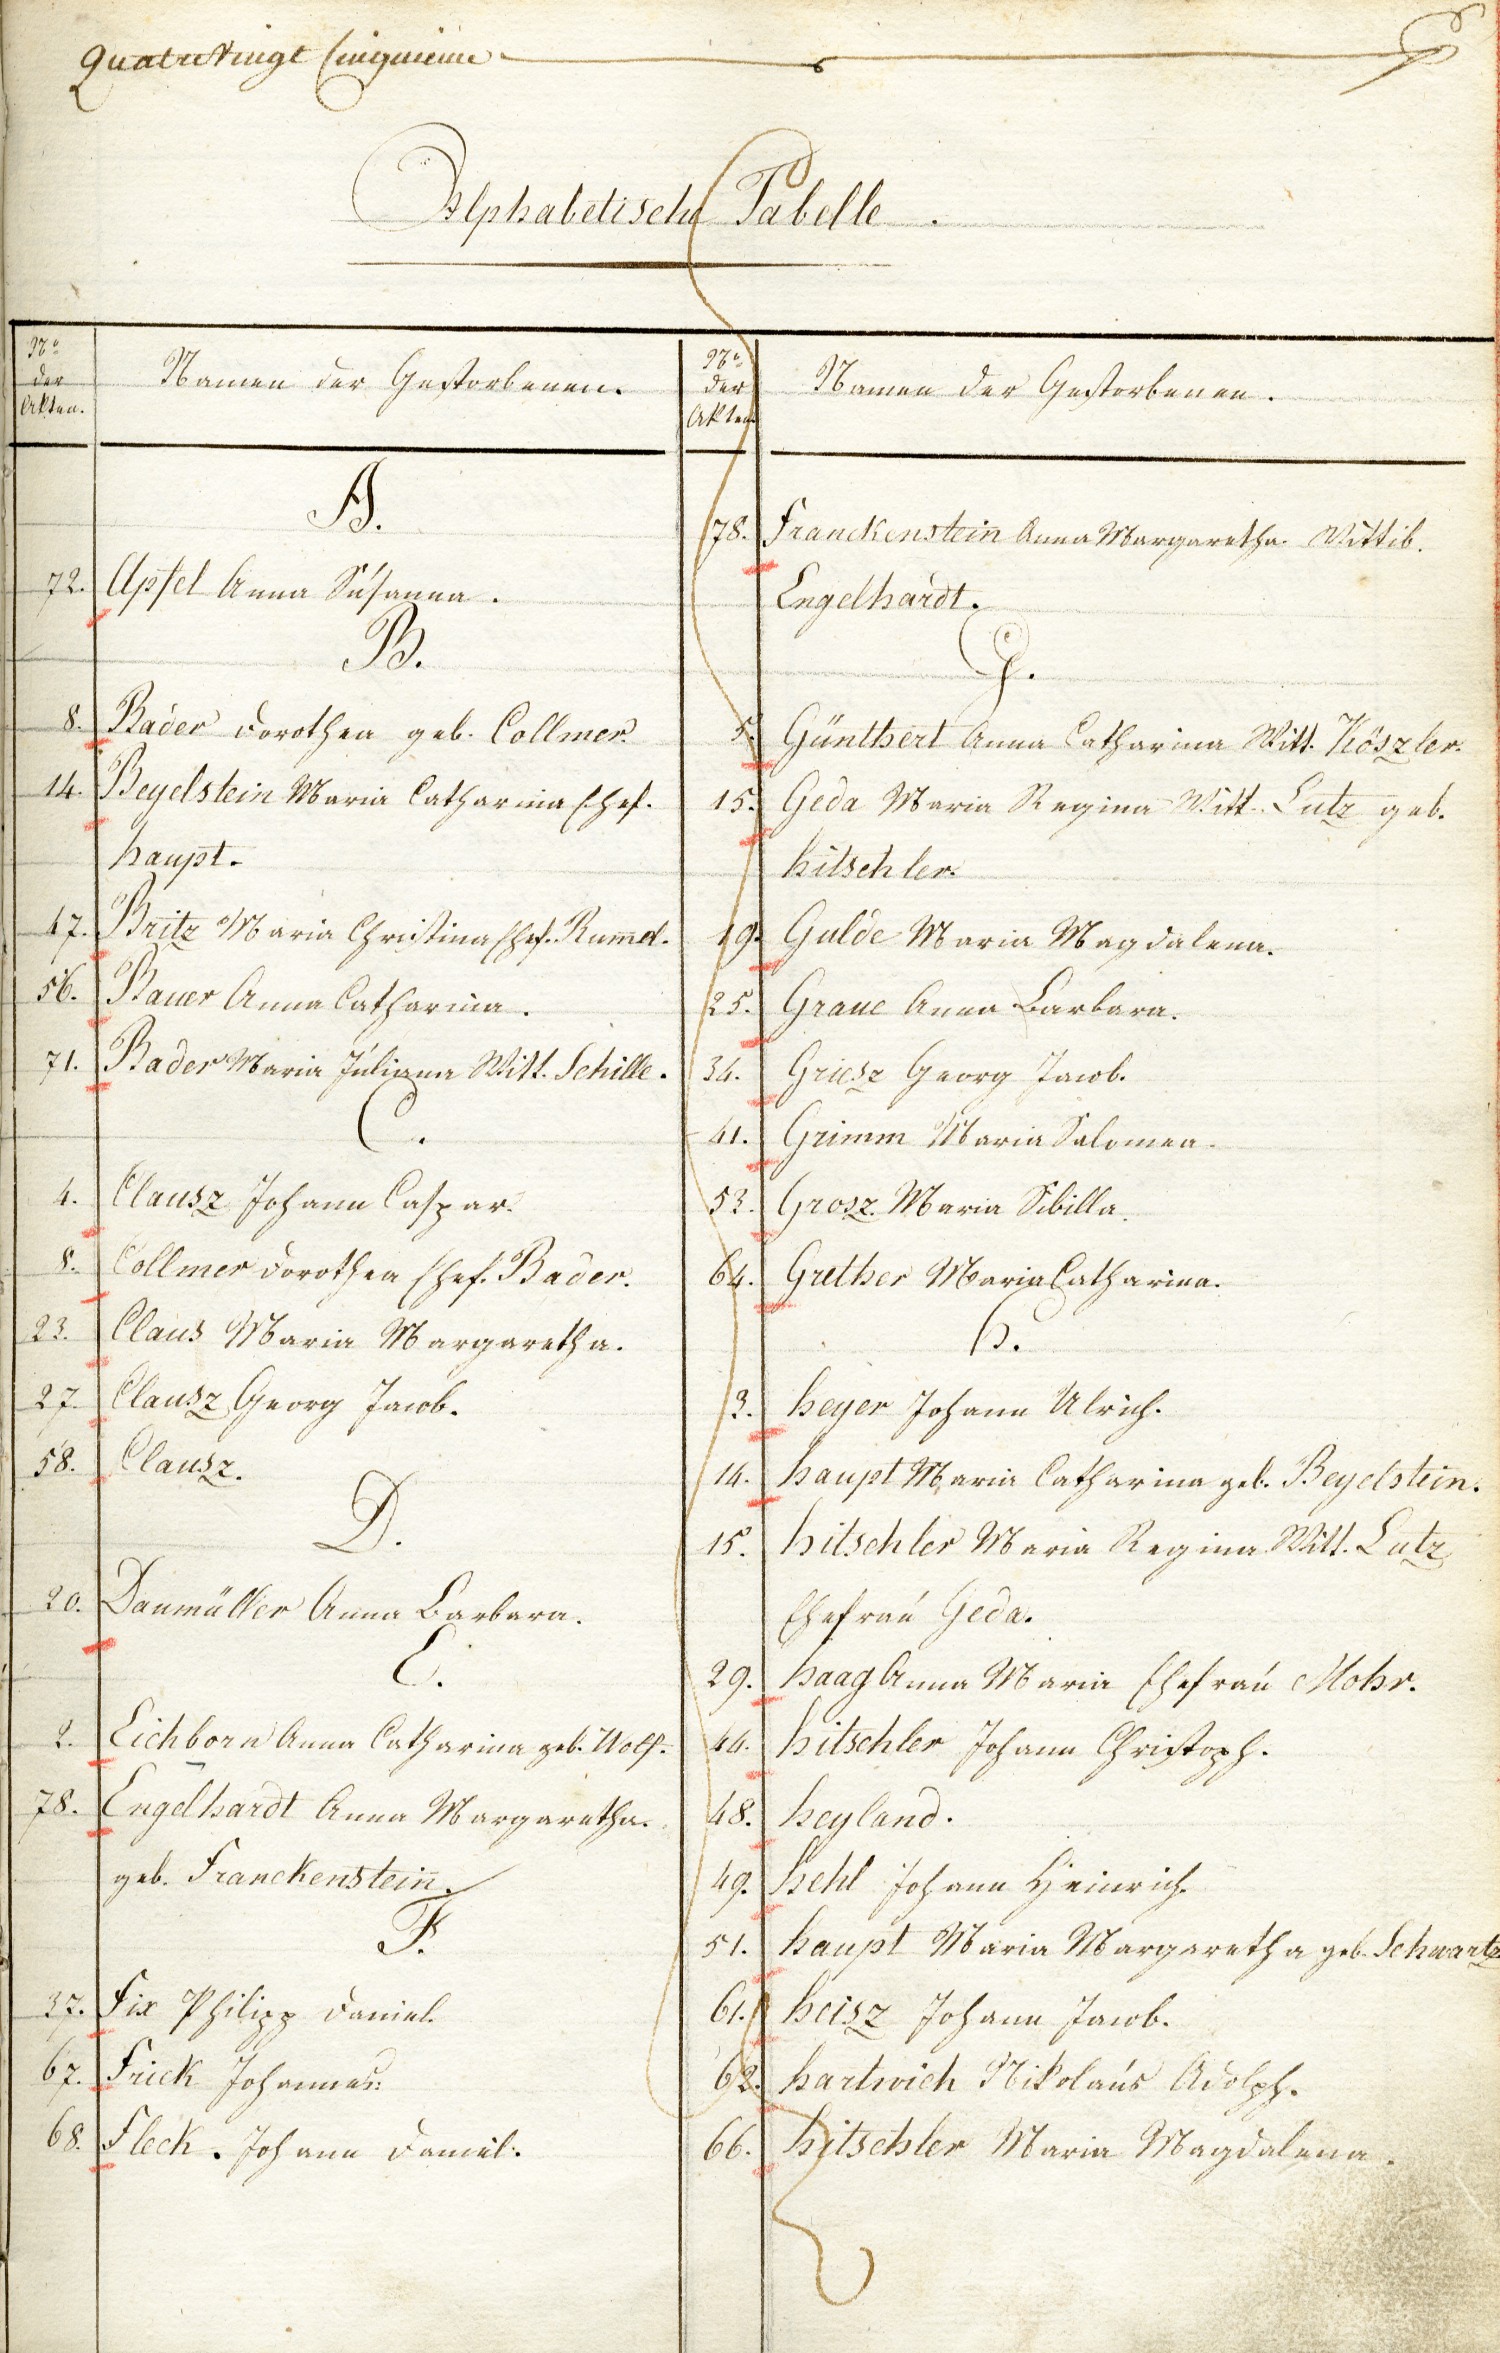 Quatre Vingt Cinquieme
Alphabetische Tabelle.
No. der Akten.
Namen der Gestorbenen.
A.
72. Apfel Anna Susanna.
B.
8. Bader Dorothea geb. Collmer.
14. Beyelstein Maria Catharina Ehef.
Haupt.
47. Britz Maria Christina Ehef. Rummel.
56. Bauer Anna Catharina.
71. Bader Maria Juliana Witt. Schille.
C.
4. Clausz Johann Caspar.
8. Collmer Dorothea Ehef. Bader.
23. Claus Maria Margaretha.
27. Clausz Georg Jacob.
58. Clausz.
D.
20. Danmüller Anna Barbara.
E.
2. Eichborn Anna Catharina geb. Wolf.
78. Engelhardt Anna Margaretha.
geb. Franckenstein.
F.
37. Fix Philipp Daniel.
67. Frick Johannes.
68. Fleck. Johann Daniel.
No. der Akten
Namen der Gestorbenen.
78. Franckenstein Anna Margaretha Wittib.
Engelhardt.
G.
5. Günthert Anna Catharina Witt. Köszler.
15. Geda Maria Regina Witt. Lutz geb.
Hitschler.
19. Gulde Maria Magdalena.
25. Graue Anna Barbara.
34. Griesz Georg Jacob.
41. Grimm Maria Salomea.
53. Grosz Maria Sibilla.
64. Grether Maria Catharina.
H.
3. Heyer Johann Ulrich.
14. Haupt Maria Catharina geb. Beyelstein.
15. Hitschler Maria Regina Witt. Lutz
Ehefrau Geda.
29. Haag Anna Maria Ehefrau Mohr.
44. Hitschler Johann Christoph.
48. Heyland.
49. Hehl Johann Heinrich.
51. Haupt Maria Margaretha geb. Schwartz
61. Heisz Johann Jacob.
62. Hartwich Nikolaus Adolph.
66. Hitschler Maria Magdalena.